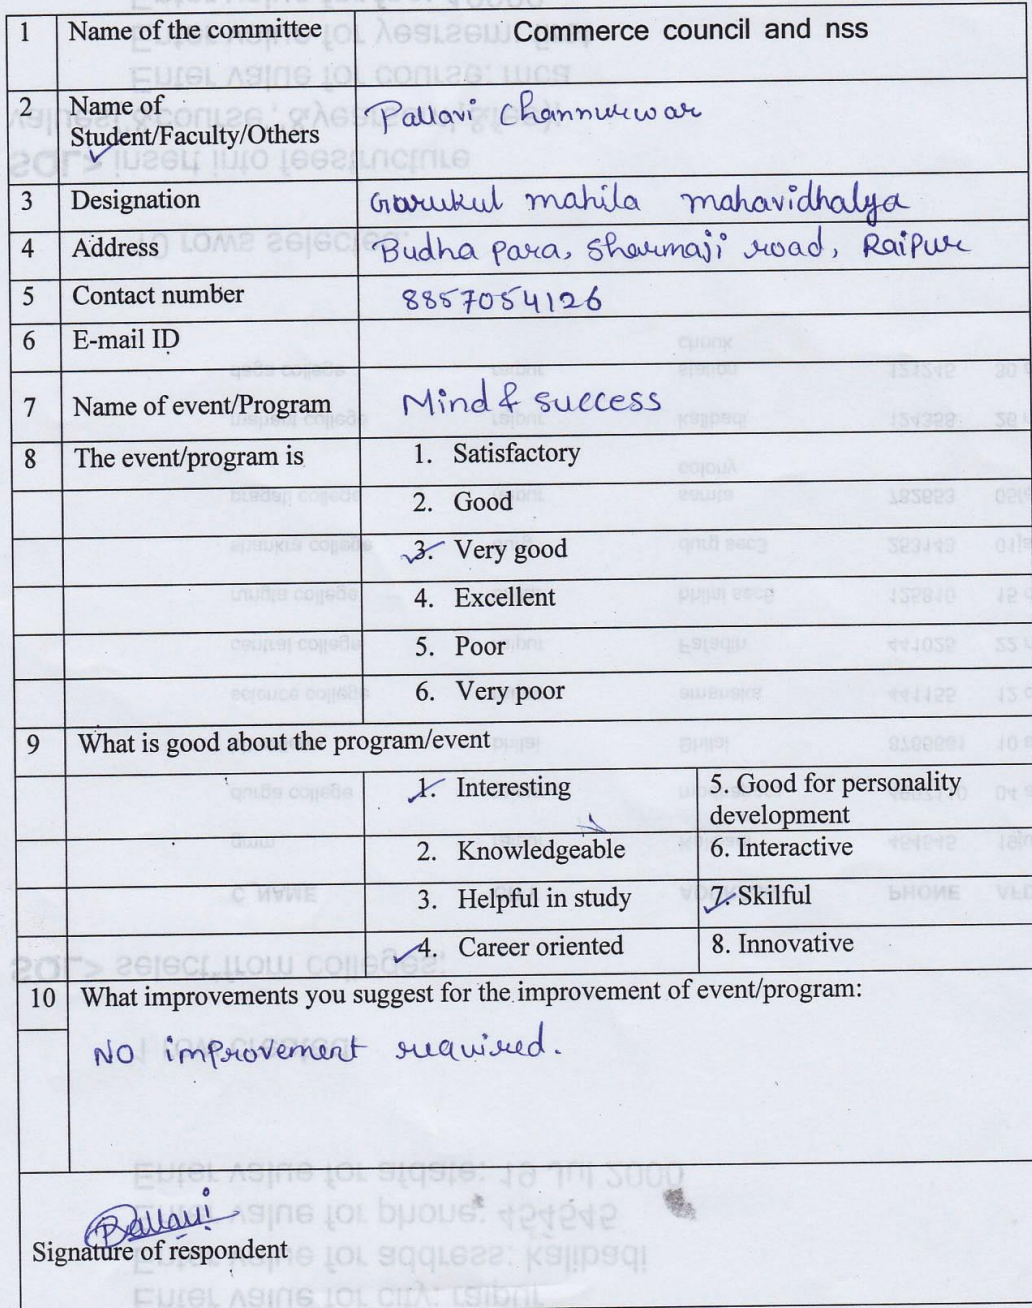 1 Name of the committee Commerce council and nss
2 Name of Student/Faculty/Others Pallavi Channurwar
3 Designation Gurukul mahila mahavidhalya
4 Address Budha para, sharmaji road, Raipur
5 Contact number 8857054126
6 E-mail ID
7 Name of event/Program Mind & success
8 The event/program is 1. Satisfactory
2. Good
3. Very good
4. Excellent
5. Poor
6. Very poor
9 What is good about the program/event
1. Interesting 5. Good for personality development
2. Knowledgeable 6. Interactive
3. Helpful in study 7. Skilful
4. Career oriented 8. Innovative
10 What improvements you suggest for the improvement of event/program:
No improvement required.
Pallavi
Signature of respondent